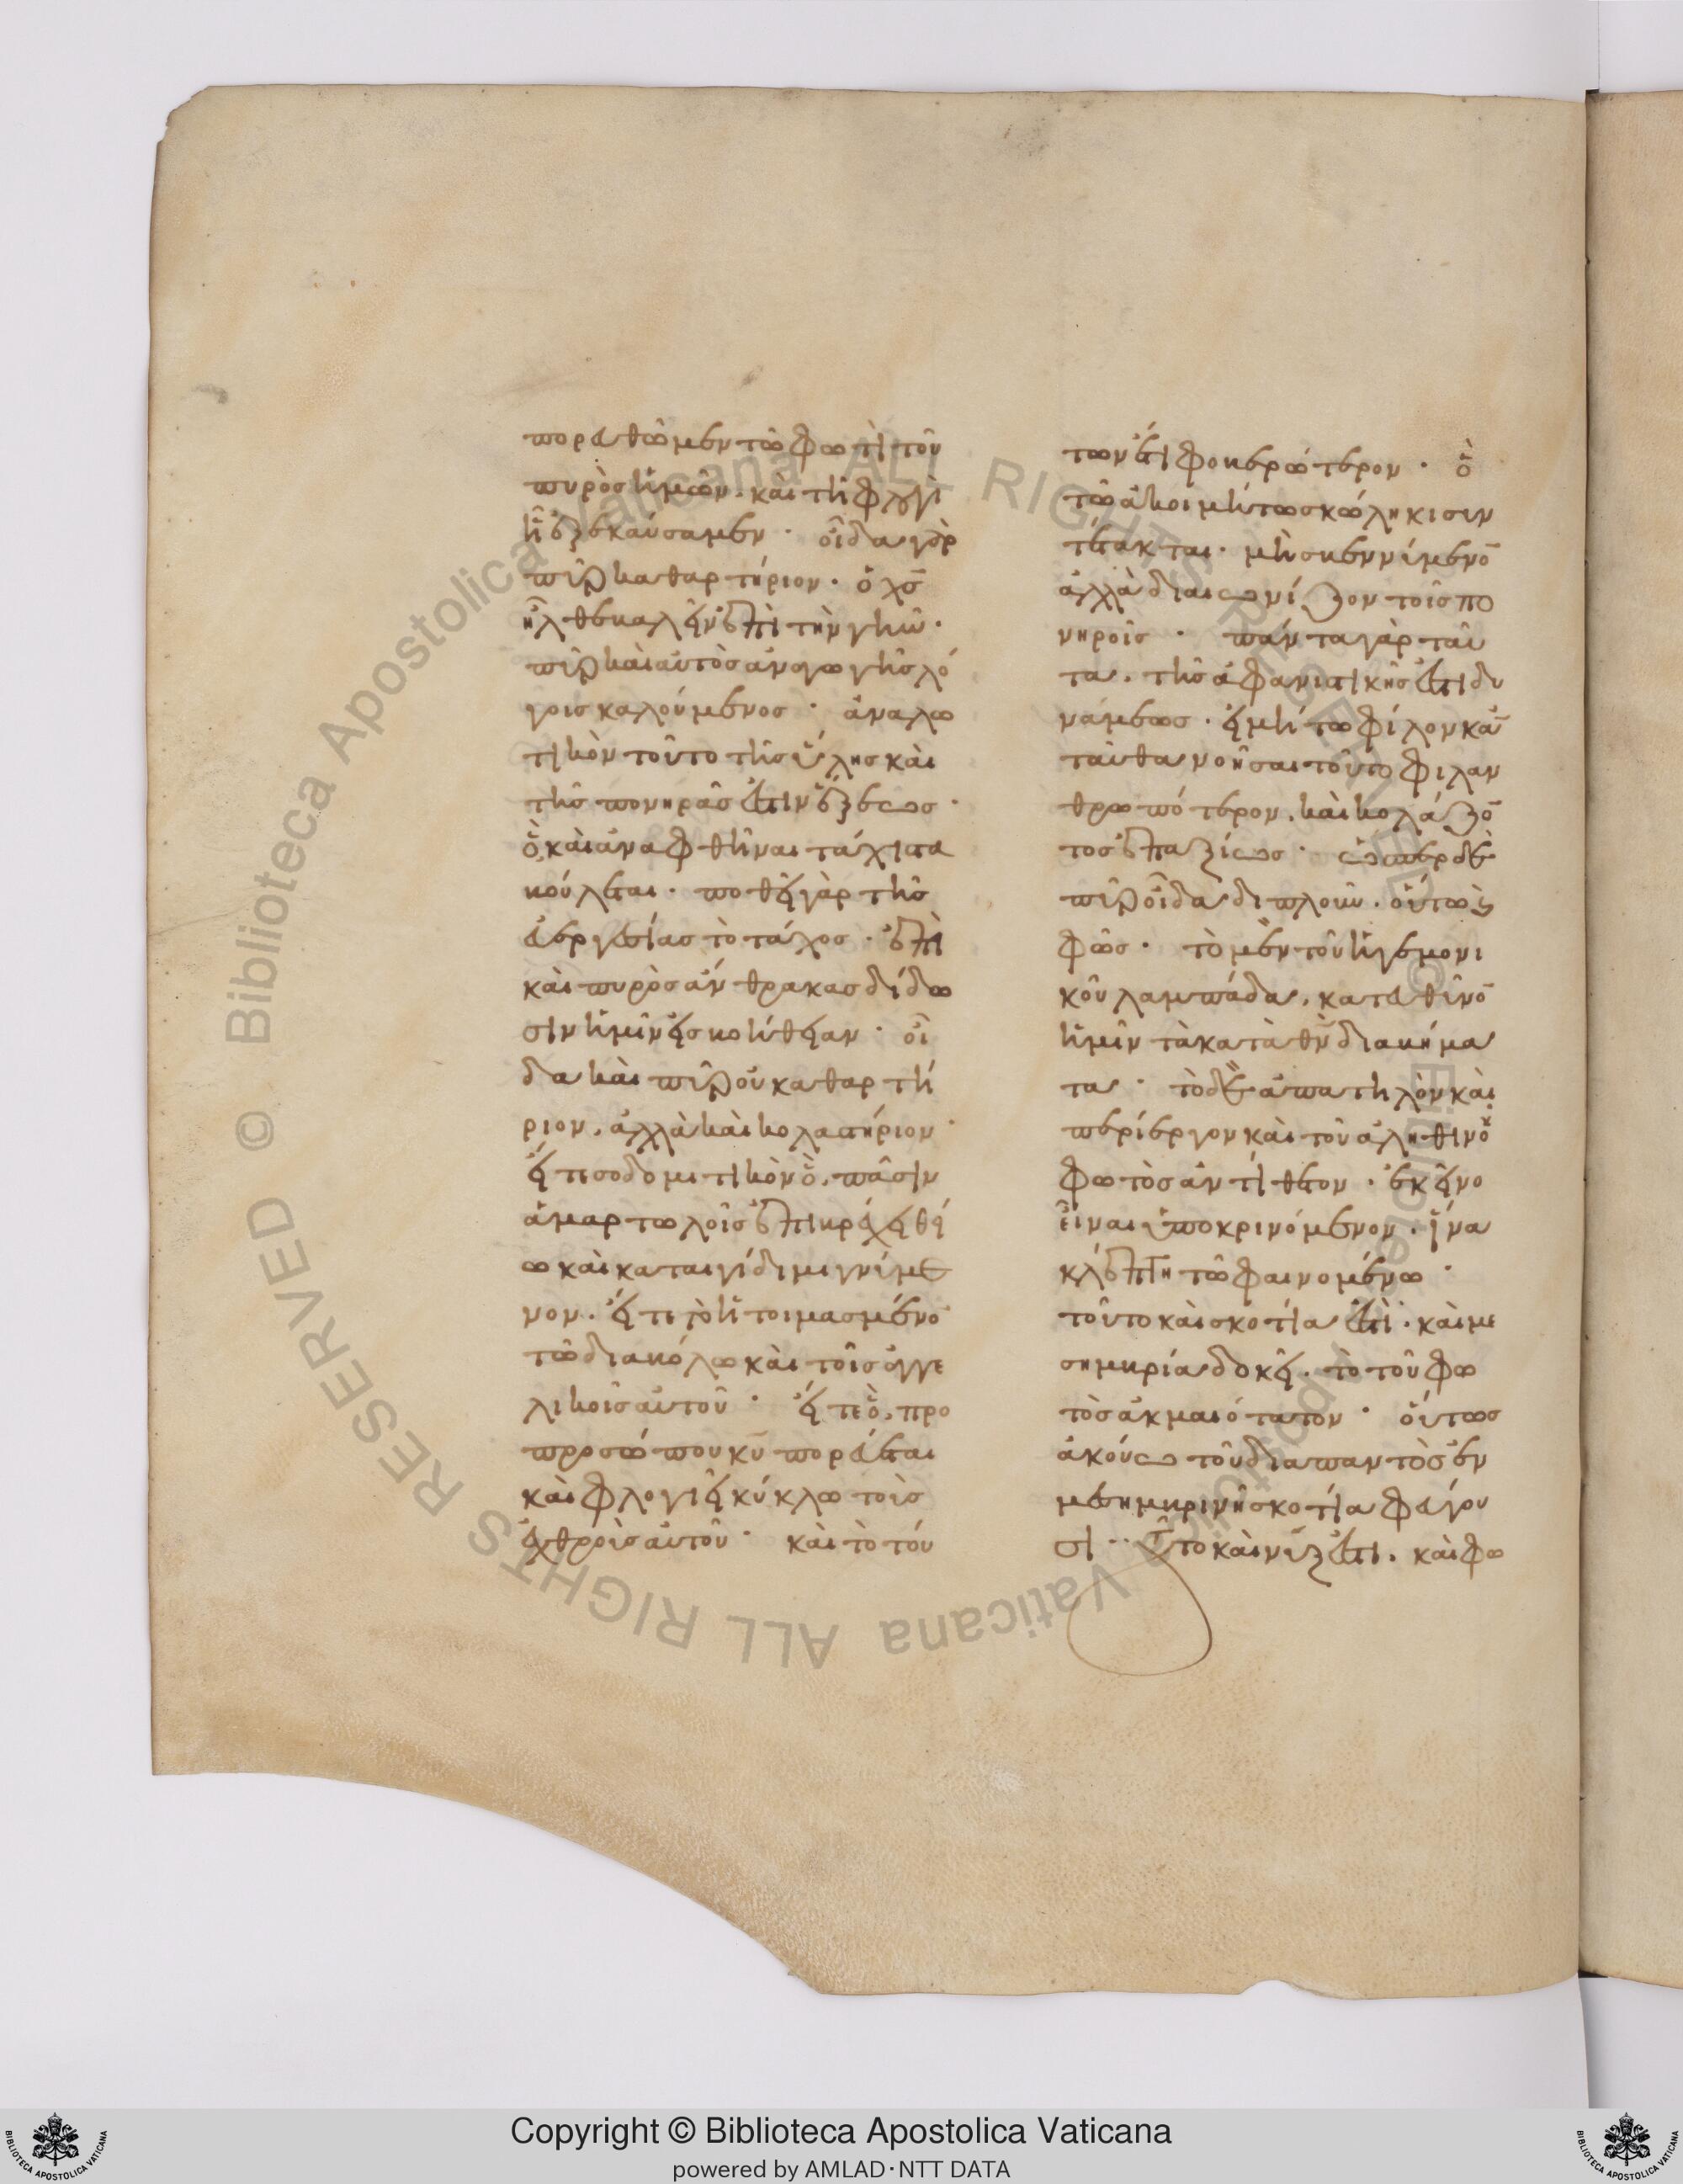 πορευθῶμεν τῶ φωτὶ τοῦ
πυρὸς ἡμῶν. καὶ τῆ φλογὶ
ἧ ἐξεκαύσαμεν · οἶδα γὰρ
πῦρ καθαρτήριον · ὃ χς̄
ἦλθε βαλεῖν ἐπὶ τὴν γῆν ·
πῦρ καὶ αὐτὸς ἀναγωγῆς λό
γοις καλούμενος · ἀναλω
τικὸν τοῦτο τῆς ὕλης καὶ
τῆς πονηρᾶς ἐστὶν ἕξεως ·
ὃ καὶ ἀναφθῆναι τάχιστα
βούλεται · ποθεῖ γὰρ τῆς
εὐεργεσίας τὸ τάχος · ἐπεὶ
καὶ πυρὸς ἄνθρακας δίδω
σιν ἡμῖν εἰς βοήθειαν · οἶ
δα καὶ πῦρ οὐ καθαρτή
ριον, ἀλλὰ καὶ κολαστήριον ·
εἴτε σοδομιτικὸν ὃ, πᾶσιν
ἁμαρτωλοῖς ἐπιβρέχει θεί
ω καὶ καταιγίδι μιγνύμε
νον · εἴτε τὸ ἡτοιμασμένο̄
τῶ διαβόλω καὶ τοῖς ἀγγε
λικοῖς αὐτοῦ · εἴτε ὃ, προ
προσώπου κῡ πορεύεται
καὶ φλογιεῖ κύκλω τοὺς
ἐχθροὺς αὐτοῦ · καὶ τὸ τού
των ἔτι φοβερώτερον · ὃ
τῶ ἀκοιμήτω σκώληκι συν
τέτακται · μὴ σβεννύμενο̄
ἀλλὰ διαιωνίζον τοῖς πο
νηροῖς · πάντα γὰρ ταῦ
τα, τῆς ἀφανιστικῆς ἐστι δυ
νάμεως · εἰ μή τω φίλον κἀ̄
ταῦθα νοῆσαι τοῦτο φιλαν
θρωπότερον, καὶ κολάζο̄
τος ἐπαξίως · ὥσπερ δὲ
πῦρ οἶδα διπλοῦν · οὕτως
φῶς · τὸ μὲν τοῦ ἡγεμονι
κοῦ λαμπάδα, κατευθῦνο̄
ἡμῖν τὰ κατὰ θν̄ διαβήμα
τα · τὸ δὲ ἀπατηλὸν καὶ
περίεργον καὶ τοῦ ἀληθινοῦ
φωτὸς ἀντίθετον · ἐκεῖνο
εἶναι ὑποκρινόμενον · ἵνα
κλέπτη τῶ φαινομένω ·
τοῦτο καὶ σκοτία ἐστὶ · καὶ με
σημβρία δοκεῖ · τὸ τοῦ φω
τὸς ἀκμαιότατον · οὕτως
ἀκούω τοῦ διαπαντὸς ἐν
μεσημβρινῆ σκοτία φεύγου
σι · τοῦτο καὶ νύξ ἐστι, καὶ φω
Copyright © Biblioteca Apostolica Vaticana
powered by AMLAD·NTT DATA
Biblioteca Apostolica Vaticana ALL RIGHTS RESERVED ©